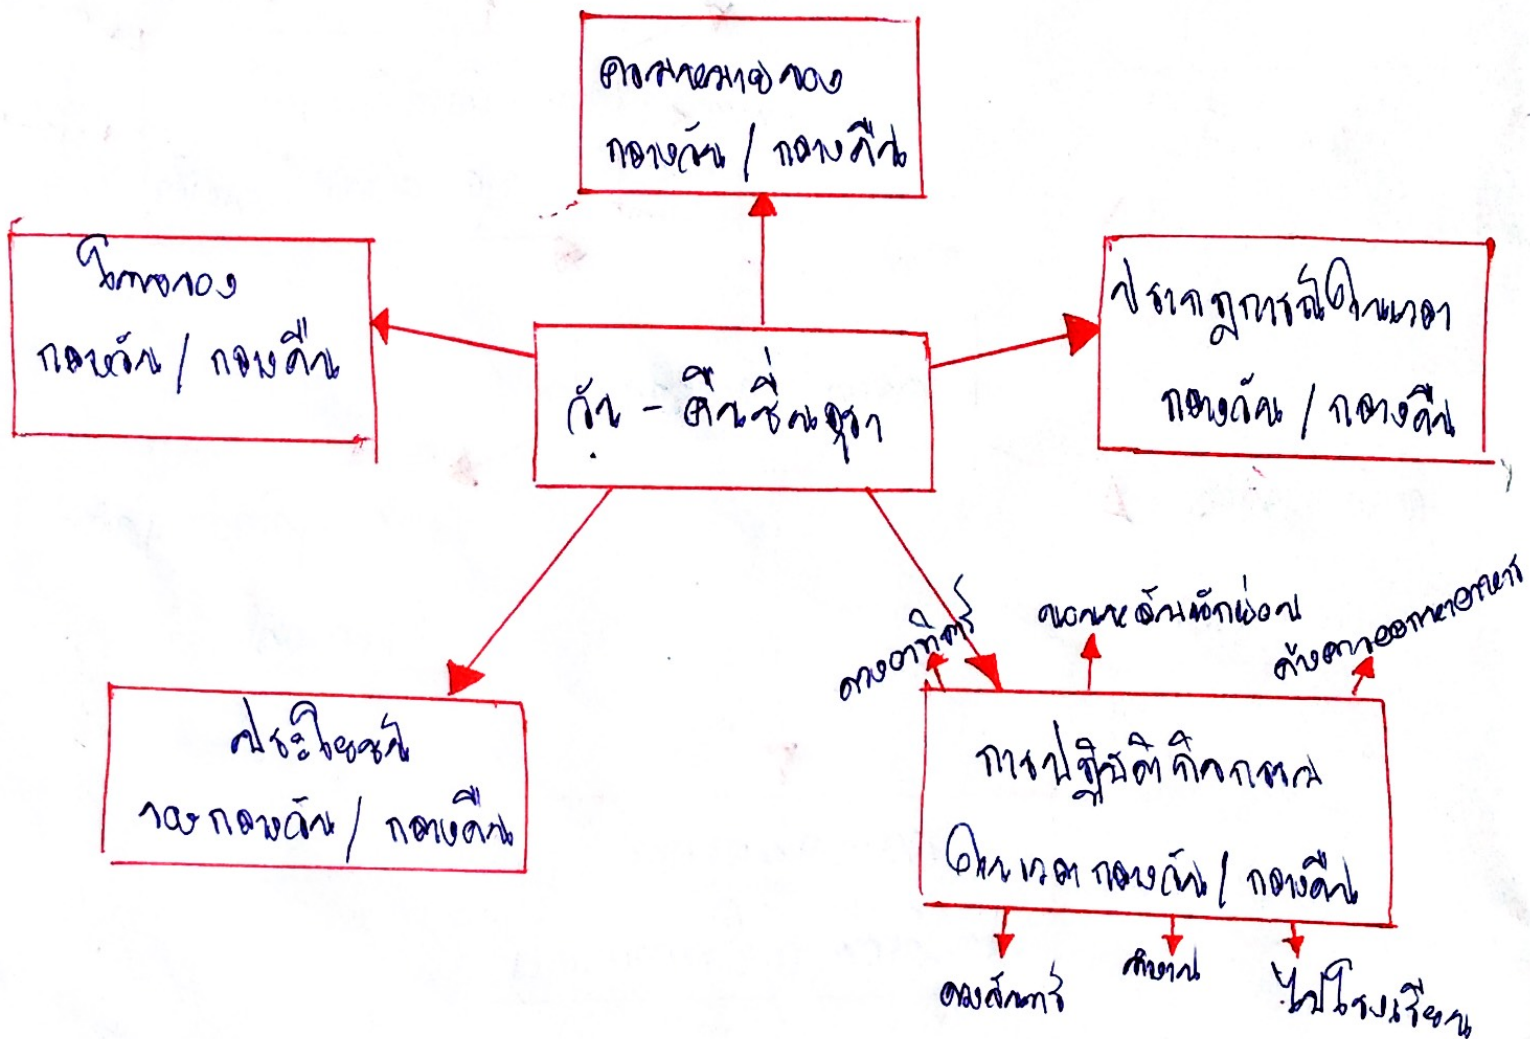 ความหมายของ
กลางวัน / กลางคืน
โทษของ
กลางวัน / กลางคืน
วัน - คืนชื่นอุรา
ปรากฏการณ์ในเวลา
กลางวัน / กลางคืน
ประโยชน์
ของกลางวัน / กลางคืน
ดวงอาทิตย์
นอนหลับพักผ่อน
ค้างคาวออกหาอาหาร
การปฏิบัติกิจกรรม
ในเวลากลางวัน / กลางคืน
ดวงจันทร์
ไปโรงเรียน